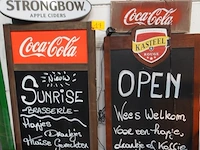 STRONGBOW
APPLE CIDERS
Coca-Cola
Nieuw
SUNRISE
BRASSERIE
Hapjes
Drankjes
Huise Gerechten
Coca-Cola
KASTEEL
ROUGE
OPEN
Wees Welkom
Voor een Hapje,
drankje of Koffie